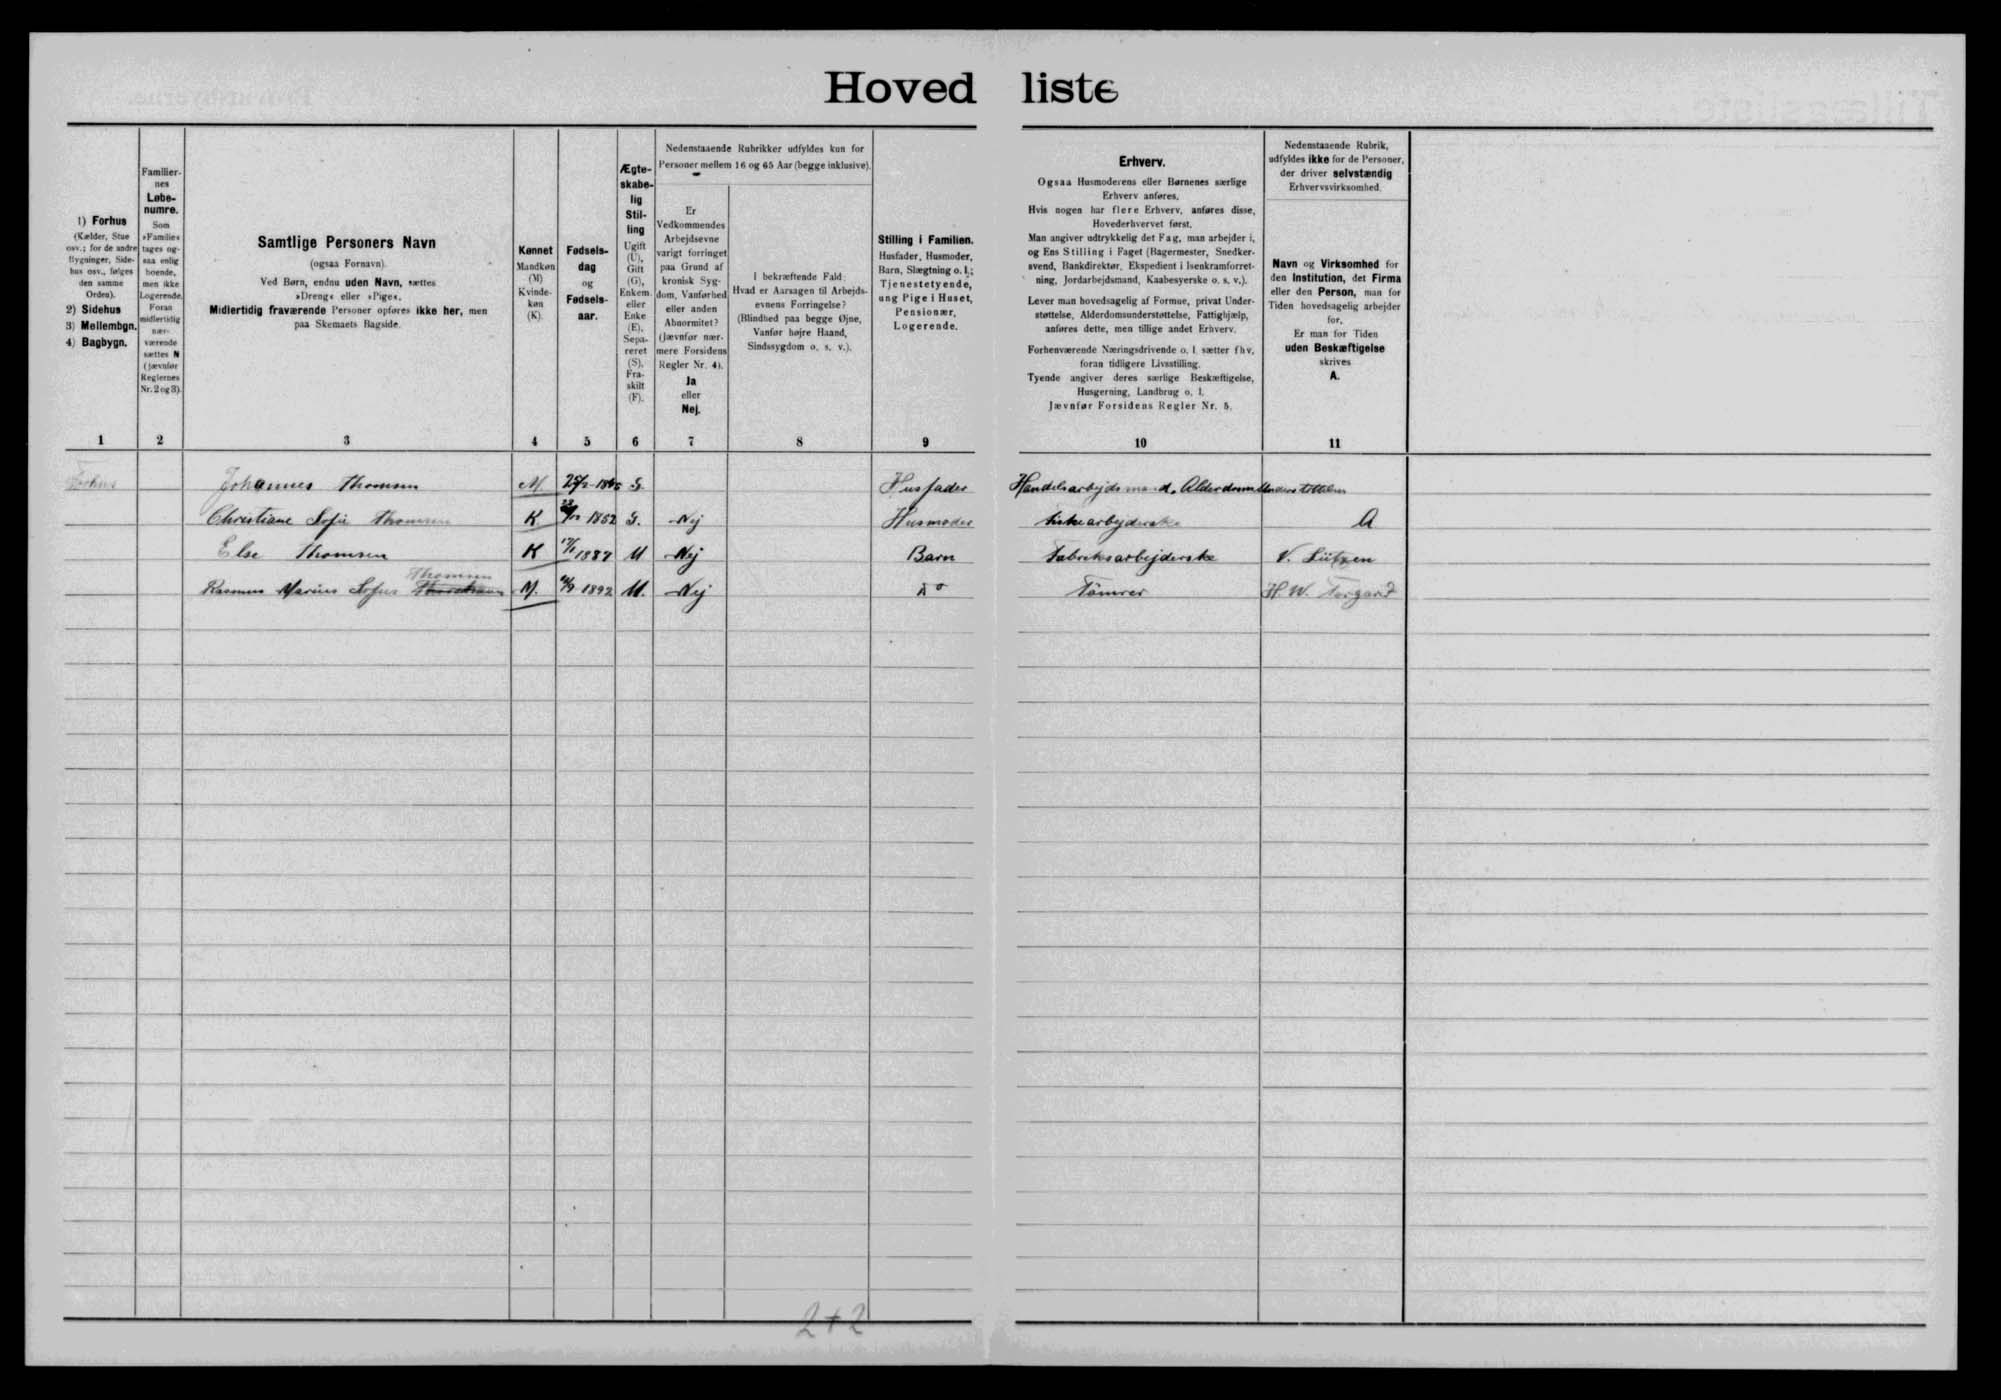 Hovedliste
1) Forhus
(Kælder, Stue
osv.; for de andre
Bygninger, Side-
hus osv., følges
den samme
Orden).
2) Sidehus
3) Mellembgn.
4) Bagbygn.
Familier-
nes
Løbe-
numre.
Som
»Familie«
tages og-
saa enlig
boende,
men ikke
Logerende.
Foran
midlertidig
nær-
værende
sættes N
(jævnfør
Reglernes
Nr. 2 og 3).
Samtlige Personers Navn
(ogsaa Fornavn).
Ved Børn, endnu uden Navn, sættes
»Dreng« eller »Pige«.
Midlertidig fraværende Personer opføres ikke her, men
paa Skemaets Bagside.
Kønnet
Mandkøn
(M)
Kvinde-
køn
(K).
Fødsels-
dag
og
Fødsels-
aar.
Ægte-
skabe-
lig
Stil-
ling
Ugift
(U),
Gift
(G),
Enkem.
eller
Enke
(E),
Sepa-
reret
(S),
Fra-
skilt
(F).
Nedenstaaende Rubrikker udfyldes kun for
Personer mellem 16 og 65 Aar (begge inklusive).
Er
Vedkommendes
Arbejdsevne
varigt forringet
paa Grund af
kronisk Syg-
dom, Vanførhed
eller anden
Abnormitet?
(Jævnfør nær-
mere Forsidens
Regler Nr. 4).
Ja
eller
Nej.
I bekræftende Fald:
Hvad er Aarsagen til Arbejds-
evnens Forringelse?
(Blindhed paa begge Øjne,
Vanfør højre Haand,
Sindssygdom o. s. v.).
Stilling i Familien.
Husfader, Husmoder,
Barn, Slægtning o. l.;
Tjenestetyende,
ung Pige i Huset,
Pensionær,
Logerende.
Erhverv.
Ogsaa Husmoderens eller Børnenes særlige
Erhverv anføres.
Hvis nogen har flere Erhverv, anføres disse,
Hovederhvervet først.
Man angiver udtrykkelig det Fag, man arbejder i,
og Ens Stilling i Faget (Bagermester, Snedker-
svend, Bankdirektør, Ekspedient i Isenkramforret-
ning, Jordarbejdsmand, Kaabesyerske o. s. v.).
Lever man hovedsagelig af Formue, privat Under-
støttelse, Alderdomsunderstøttelse, Fattighjælp,
anføres dette, men tillige andet Erhverv.
Forhenværende Næringsdrivende o. l. sætter fhv.
foran tidligere Livsstilling.
Tyende angiver deres særlige Beskæftigelse,
Husgerning, Landbrug o. l.
Jævnfør Forsidens Regler Nr. 5.
Nedenstaaende Rubrik,
udfyldes ikke for de Personer,
der driver selvstændig
Erhvervsvirksomhed.
Navn og Virksomhed for
den Institution, det Firma
eller den Person, man for
Tiden hovedsagelig arbejder
for.
Er man for Tiden
uden Beskæftigelse
skrives
A.
1 2 3 4 5 6 7 8 9 10 11
Forhus Johannes Thomsen M G. Husfader Handelsarbejdsmand, Alderdom
Christiane Sofie Thomsen K 1852 G. Nej Husmoder A
Else Thomsen K 1887 U Nej Barn Fabriksarbejderske V. Lützen
Thomsen
Rasmus Marius Sofus M. 1892 U. Nej do Tömrer H. W.
2+2